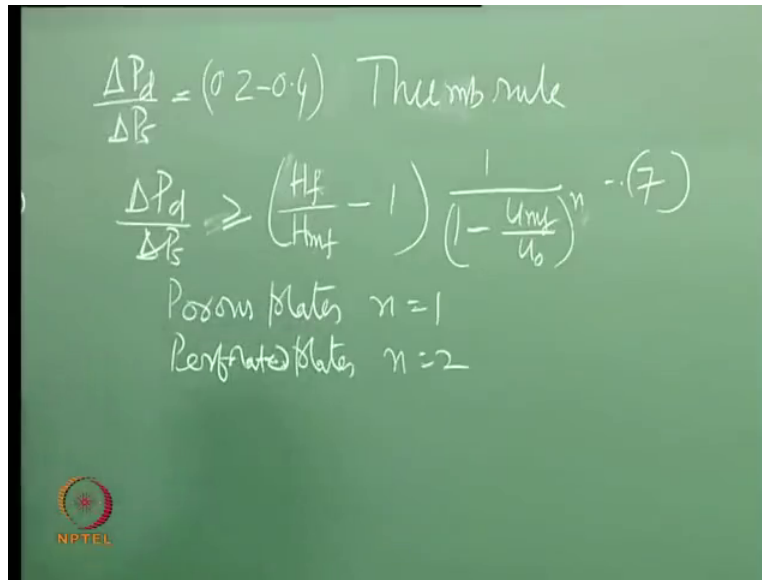 ΔPd/ΔPs = (0.2-0.4) Thumb rule
ΔPd/ΔPs ≥ (Hf/Hmf - 1) 1/(1 - Umf/Uo)^n --(7)
Porous plates n=1
Perforated plates n=2
NPTEL